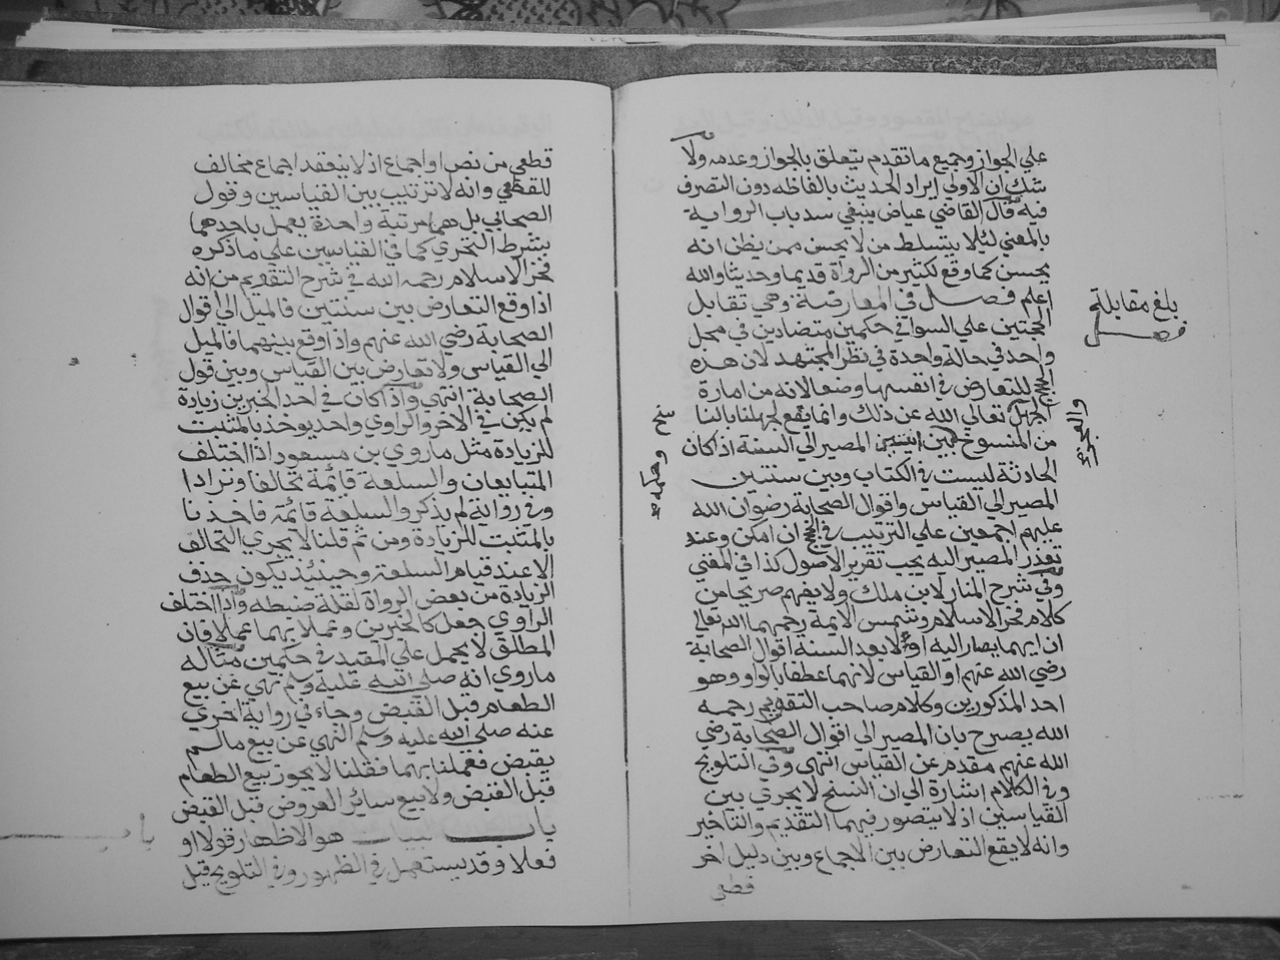 علي الجواز وجميع ما تقدم يتعلق بالجواز وعدمه ولا
شك ان الاولي ايراد الحديث بالفاظه دون التصرف
فيه قال القاضي عياض ينبغي سد باب الرواية
بالمعني لئلا يتسلط من لا يحسن ممن يظن انه
يحسن كما وقع لكثير من الرواة قديما وحديثا والله
اعلم فصل في المعارضة وهي تقابل
الحجتين علي السوا في حكمين متضادين في محل
واحد في حالة واحدة في نظر المجتهد لان هذه
الحجج للتعارض في انفسها وضعا لانه من امارة
الجهل تعالي الله عن ذلك وانما يقع لجهلنا بالناسخ
من المنسوخ وحكمها بين ايتين المصير الي السنة اذ كان
الحادثة ليست في الكتاب وبين سنتين
المصير الي القياس واقوال الصحابة رضوان الله
عليهم اجمعين علي الترتيب في الحجج ان امكن وعند
تعذر المصير اليه يجب تقرير الاصول كذا في المغني
وفي شرح المنار لابن ملك ولا يفهم صريحا من
كلام فخر الاسلام وشمس الايمة رحمهما الله تعالي
ان ايهما يصار اليه اولا بعد السنه اقوال الصحابة
رضي الله عنهم او القياس لانهما عطفا بالواو وهو
احد المذكورين وكلام صاحب التقويم رحمه
الله يصرح بان المصير الي اقوال الصحابة رضي
الله عنهم مقدم عن القياس انتهى وفي التلويح
وفي الكلام اشارة الي ان النسخ لا يجري بين
القياسين اذ لا يتصور فيهما التقديم والتاخير
وانه لا يقع التعارض بين الاجماع وبين دليل اخر
قطعي
بلغ مقابلة
فصل
والعجز
وحكمها
قطعي من نص او اجماع اذ لا ينعقد اجماع مخالف
للقطعي وانه لا ترتيب بين القياسين وقول
الصحابي بل هما مرتبة واحدة يعمل باحدهما
بشرط التحري كما في القياسين علي ما ذكره
فخر الاسلام رحمه الله في شرح التقويم من انه
اذا وقع التعارض بين سنتين فالميل الي اقوال
الصحابة رضي الله عنهم واذا وقع بينهما فالميل
الي القياس ولا تعارض بين القياس وبين قول
الصحابة انتهي واذا كان في احد الخبرين زيادة
لم يكن في الاخر والراوي واحد يوخذ بالمثبت
للزيادة مثل ما روي بن مسعود اذا اختلف
المتبايعان والسلعة قائمة تحالفا وترادا
وفي رواية لم يذكر والسلعة قائمة فاخذنا
بالمثبت للزيادة ومن ثم قلنا لا يجري التحالف
الا عند قيام السلعة وحينئذ يكون حذف
الزيادة من بعض الرواة لقلة ضبطه واذا اختلف
الراوي جعل كالخبرين وعملا بهما عملا فان
المطلق لا يحمل علي المقيد في حكمين مثاله
ما روي انه صلي الله عليه وسلم نهي عن بيع
الطعام قبل القبض وجاء في رواية اخري
عنه صلي الله عليه وسلم النهي عن بيع ما لم
يقبض فعملنا بهما فقلنا لا يجوز بيع الطعام
قبل القبض ولا بيع سائر العروض قبل القبض
باب البيان هو الاظهار قولا او
فعلا وقد يستعمل في الظهور وفي التلويح قيل
باب